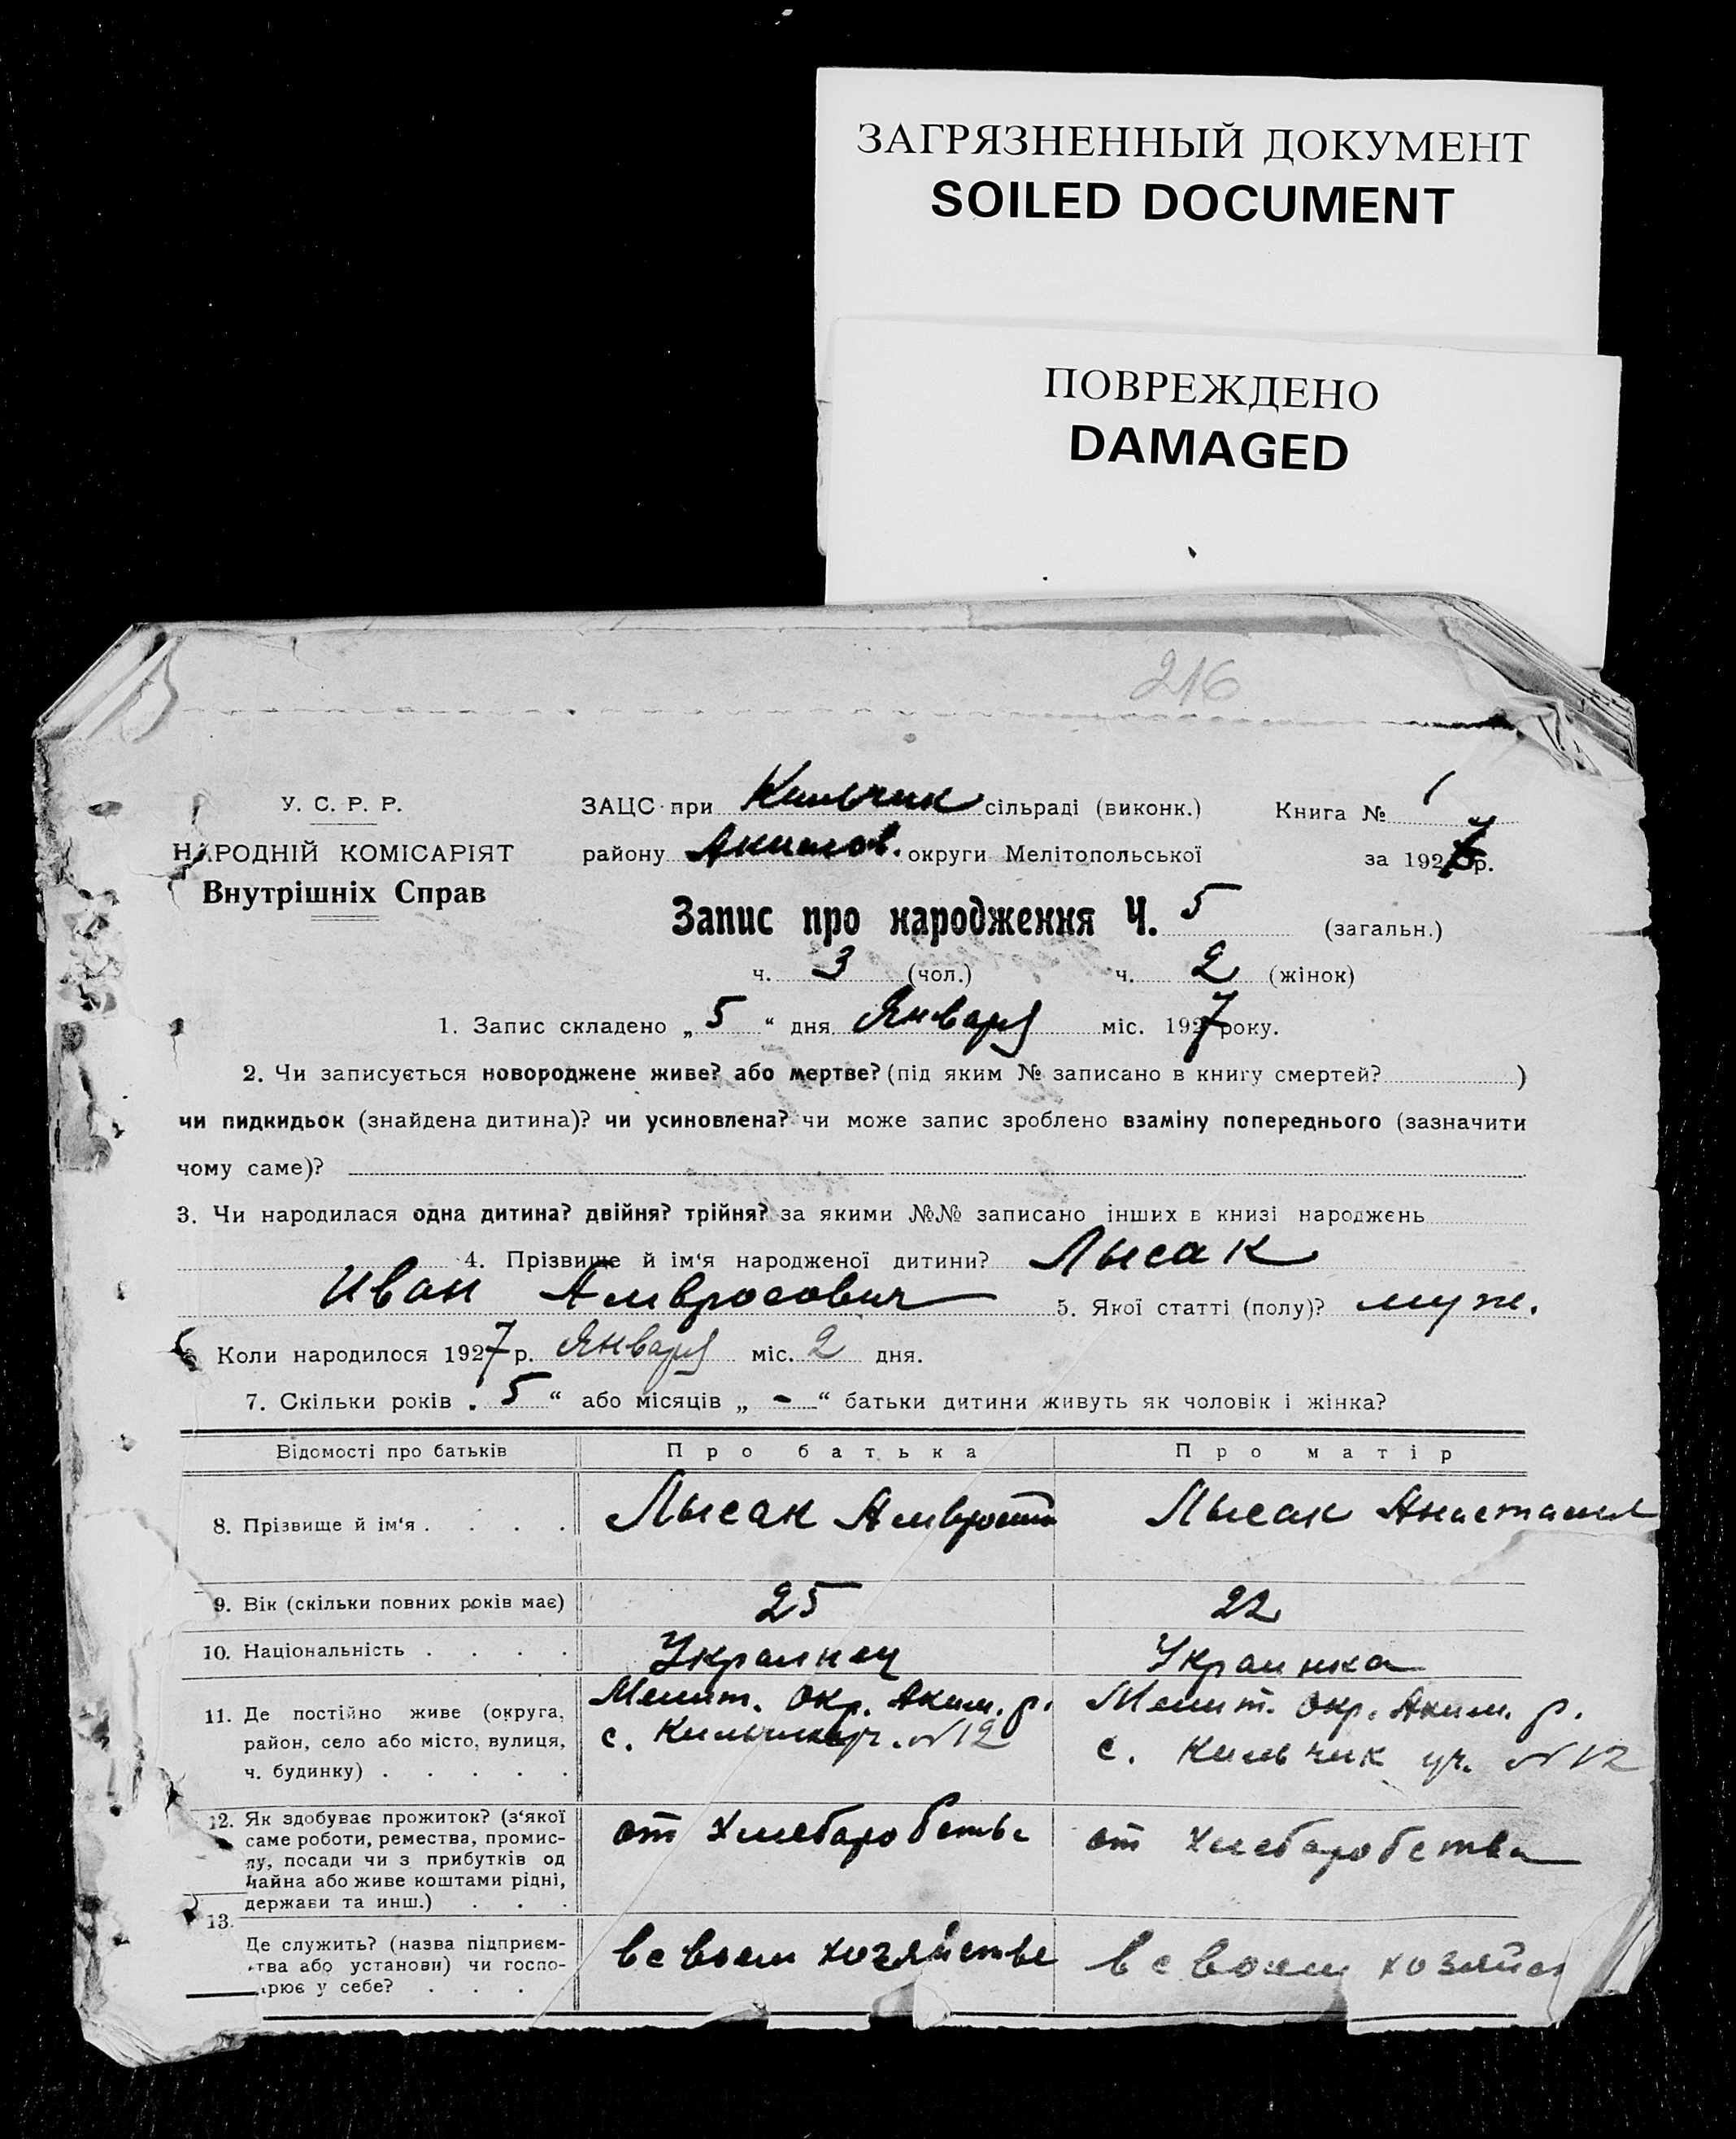 ЗАГРЯЗНЕННЫЙ ДОКУМЕНТ
SOILED DOCUMENT
ПОВРЕЖДЕНО
DAMAGED
216
У. С. Р. Р.
НАРОДНІЙ КОМІСАРІЯТ
Внутрішніх Справ
ЗАЦС при Кильчик сільраді (виконк.) Книга № 1
району Акимов. округи Мелітопольської за 1927 р.
Запис про народження Ч. 5 (загальн.)
ч. 3 (чол.) ч. 2 (жінок)
1. Запис складено „ 5 “ дня Января міс. 1927 року.
2. Чи записується новороджене живе? або мертве? (під яким № записано в книгу смертей? )
чи пидкидьок (знайдена дитина)? чи усиновлена? чи може запис зроблено взаміну попереднього (зазначити
чому саме)?
3. Чи народилася одна дитина? двійня? трійня? за якими №№ записано інших в книзі народжень
4. Прізвище й ім‘я народженої дитини? Лысак
Иван Амвросович 5. Якої статті (полу)? муж.
Коли народилося 1927 р. Января міс. 2 дня.
7. Скільки років „ 5 “ або місяців „ - “ батьки дитини живуть як чоловік і жінка?
Відомості про батьків Про батька Про матір
8. Прізвище й ім‘я . . . . Лысак Амвросий Лысак Анастасия
9. Вік (скільки повних років має) 25 22
10. Національність . . . . Украинец Украинка
11. Де постійно живе (округа, Мелит. Окр. Аким. р. Мелит. Окр. Аким. р.
район, село або місто, вулиця, с. Кильчик уч. №12 с. Кильчик уч. №12
ч. будинку) . . . . .
12. Як здобуває прожиток? (з‘якої от хлебаробства от хлебаробства
саме роботи, ремества, промис-
лу, посади чи з прибутків од
майна або живе коштами рідні,
держави та инш.) . . .
13.
Де служить? (назва підприєм- в своем хозяйстве в своем хозяйс
тва або установи) чи госпо-
рює у себе? . . . .